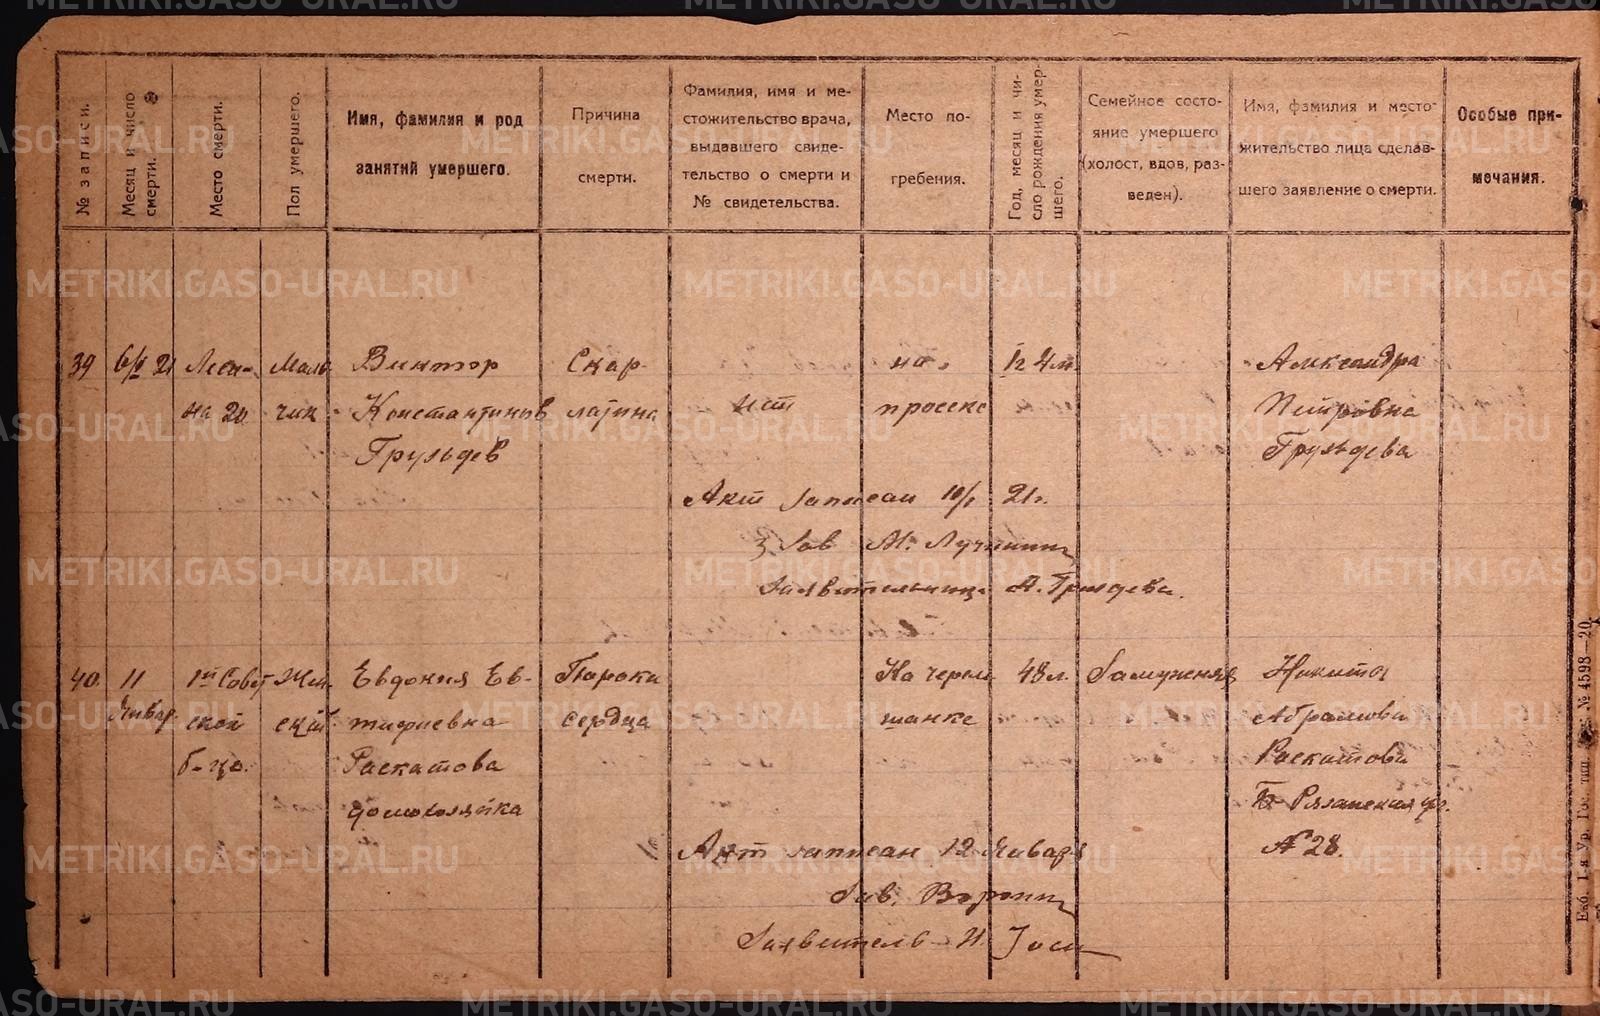 № записи.
Месяц и число
смерти.
Место смерти.
Пол умершего.
Имя, фамилия и род
занятий умершего.
Причина
смерти.
Фамилия, имя и ме-
стожительство врача,
выдавшего свиде-
тельство о смерти и
№ свидетельства.
Место по-
гребения.
Год, месяц и чи-
сло рождения умер-
шего.
Семейное состо-
яние умершего
(холост, вдов, раз-
веден).
Имя, фамилия и место-
жительство лица сделав-
шего заявление о смерти.
Особые при-
мечания.
39
6/I 21
на 20
Маль
чик
Виктор
Константинов
Груздев
Скар-
латина
нет
на
просеке
1г 4м
Александра
Петровна
Груздева
Акт записан 10/I 21г.
Зав
Заявительница А. Груздева.
40.
11
Январ.
1й Совет
ской
б-цы.
Жен.
ский
Евдокия Ев-
тифиевна
Раскатова
домохозяйка
Порока
сердца
На черем
шанке
48л.
Замужняя
Никита
Абрамова
Раскатова
Рязанская
№ 28.
Акт записан 12 Января
Зав. Воронин
Заявитель Н.
Екб. 1-я Ур. Гос. тип. № 4598—20
METRIKI.GASO-URAL.RU